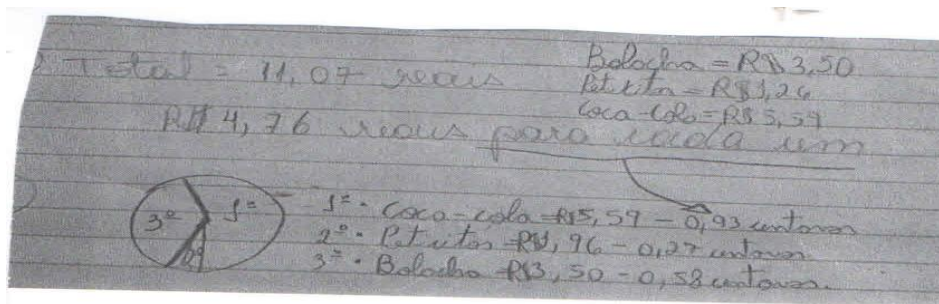 Total = 11,07 reais
Bolacha = R$ 3,50
Petit = R$1,26
Coca-Cola = R$ 5,59
R$ 4,76 reais para cada um
3º 1º
1º • Coca-cola = R$5,59 - 0,93 centavos
2º • R$1, 96 - 0,27 centavos
3º • Bolacha - R$3,50 - 0,58 centavos.